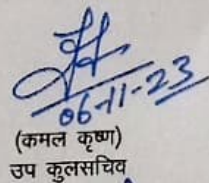 06-11-23
(कमल कृष्ण)
उप कुलसचिव